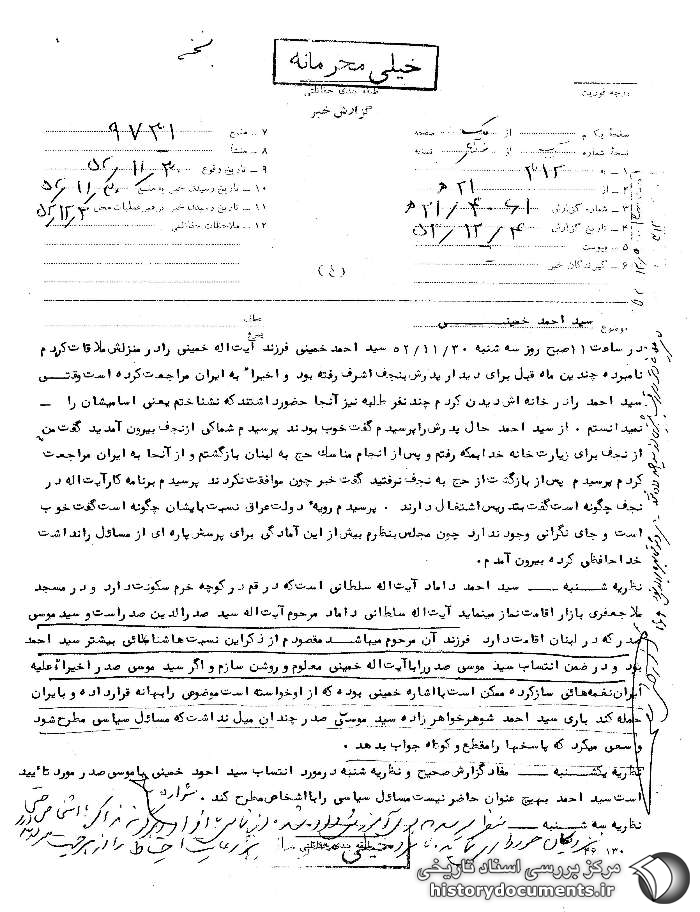 خیلی محرمانه
طبقه بندی حفاظتی
درجه فوریت
گزارش خبر
صفحه یکم از یک صفحه
نسخه شماره از نسخه
۱ – به ۳۱۲
۲ – از ۲۱ ه
۳ – شماره گزارش
۴ – تاریخ گزارش ۵۲/۱۲/۴
۵ – پیوست
۶ – گیرندگان خبر
۷ – منبع ۹۷۳۱
۸ – منشأ
۹ – تاریخ وقوع ۵۲/۱۱/۳۰
۱۰ – تاریخ رسیدن خبر به منبع ۵۲/۱۱/۳۰
۱۱ – تاریخ رسیدن خبر به رهبر عملیات محل
۱۲ – ملاحظات حفاظتی
(٤)
موضوع سید احمد خمینی
در ساعت ۱۱ صبح روز سه شنبه ۵۲/۱۱/۳۰ سید احمد خمینی فرزند آیت اله خمینی را در منزلش ملاقات کردم
نامبرده چندین ماه قبل برای دیدار پدرش بنجف اشرف رفته بود و اخیراً به ایران مراجعت کرده است وقتی
سید احمد را در خانه اش دیدن کردم چند نفر طلبه نیز آنجا حضور داشتند که نشناختم یعنی اسامیشان را –
نمیدانستم . از سید احمد حال پدرش را پرسیدم گفت خوب بودند پرسیدم شما کی از نجف بیرون آمدید گفت من
از نجف برای زیارت خانه خدا بمکه رفتم و پس از انجام مناسک حج به لبنان بازگشتم و از آنجا به ایران مراجعت
کردم پرسیدم پس از بازگشت از حج به نجف نرفتید گفت خیر چون موافقت نکردند پرسیدم برنامه کار آیت اله در
نجف چگونه است گفت بتدریس اشتغال دارند . پرسیدم رویه دولت عراق نسبت بایشان چگونه است گفت خوب
است و جای نگرانی وجود ندارد چون مجلس بنظرم بیش از این آمادگی برای پرسش پاره ای از مسائل را نداشت
خداحافظی کرده بیرون آمدم .
نظریه شنبه – سید احمد داماد آیت اله سلطانی است که در قم در کوچه حرم سکونت دارد و در مسجد
ملا جعفری بازار اقامت نماز مینماید آیت اله سلطانی داماد مرحوم آیت اله سید صدرالدین صدر است و سید موسی
صدر که در لبنان اقامت دارد فرزند آن مرحوم میباشد مقصودم از ذکر این نسبت ها شناسائی بیشتر سید احمد
بود و در ضمن انتساب سید موسی صدر را با آیت اله خمینی معلوم و روشن سازم و اگر سید موسی صدر اخیراً علیه
ایران نغمه هائی ساز کرده ممکن است با اشاره خمینی بوده که از او خواسته است موضوعی را بهانه قرار داده و بایران
حمله کند باری سید احمد شوهر خواهر زاده سید موسی صدر چندان میل نداشت که مسائل سیاسی مطرح شود
و سعی میکرد که پاسخها را مقطع و کوتاه جواب بدهد .
نظریه یکشنبه – مفاد گزارش صحیح و نظریه شنبه در مورد انتساب سید احمد خمینی با موسی صدر مورد تأیید
است سید احمد بهیچ عنوان حاضر نیست مسائل سیاسی را با اشخاص مطرح کند .
نظریه سه شنبه –
خیلی
طبقه بندی حفاظتی
مرکز بررسی اسناد تاریخی
historydocuments.ir